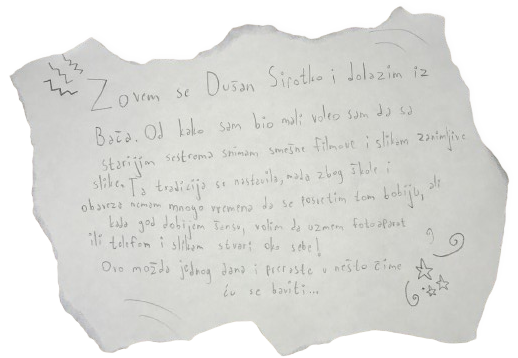 Zovem se Dušan Sirotko i dolazim iz
Bača. Od kako sam bio mali voleo sam da sa
starijim sestrama snimam smešne filmove i slikam zanimljive
slike. Ta tradicija se nastavila, mada zbog škole i
obaveza nemam mnogo vremena da se posvetim tom hobiju, ali
kada god dobijem šansu, volim da uzmem fotoaparat
ili telefon i slikam stvari oko sebe!
Ovo možda jednog dana i preraste u nešto čime
ću se baviti...